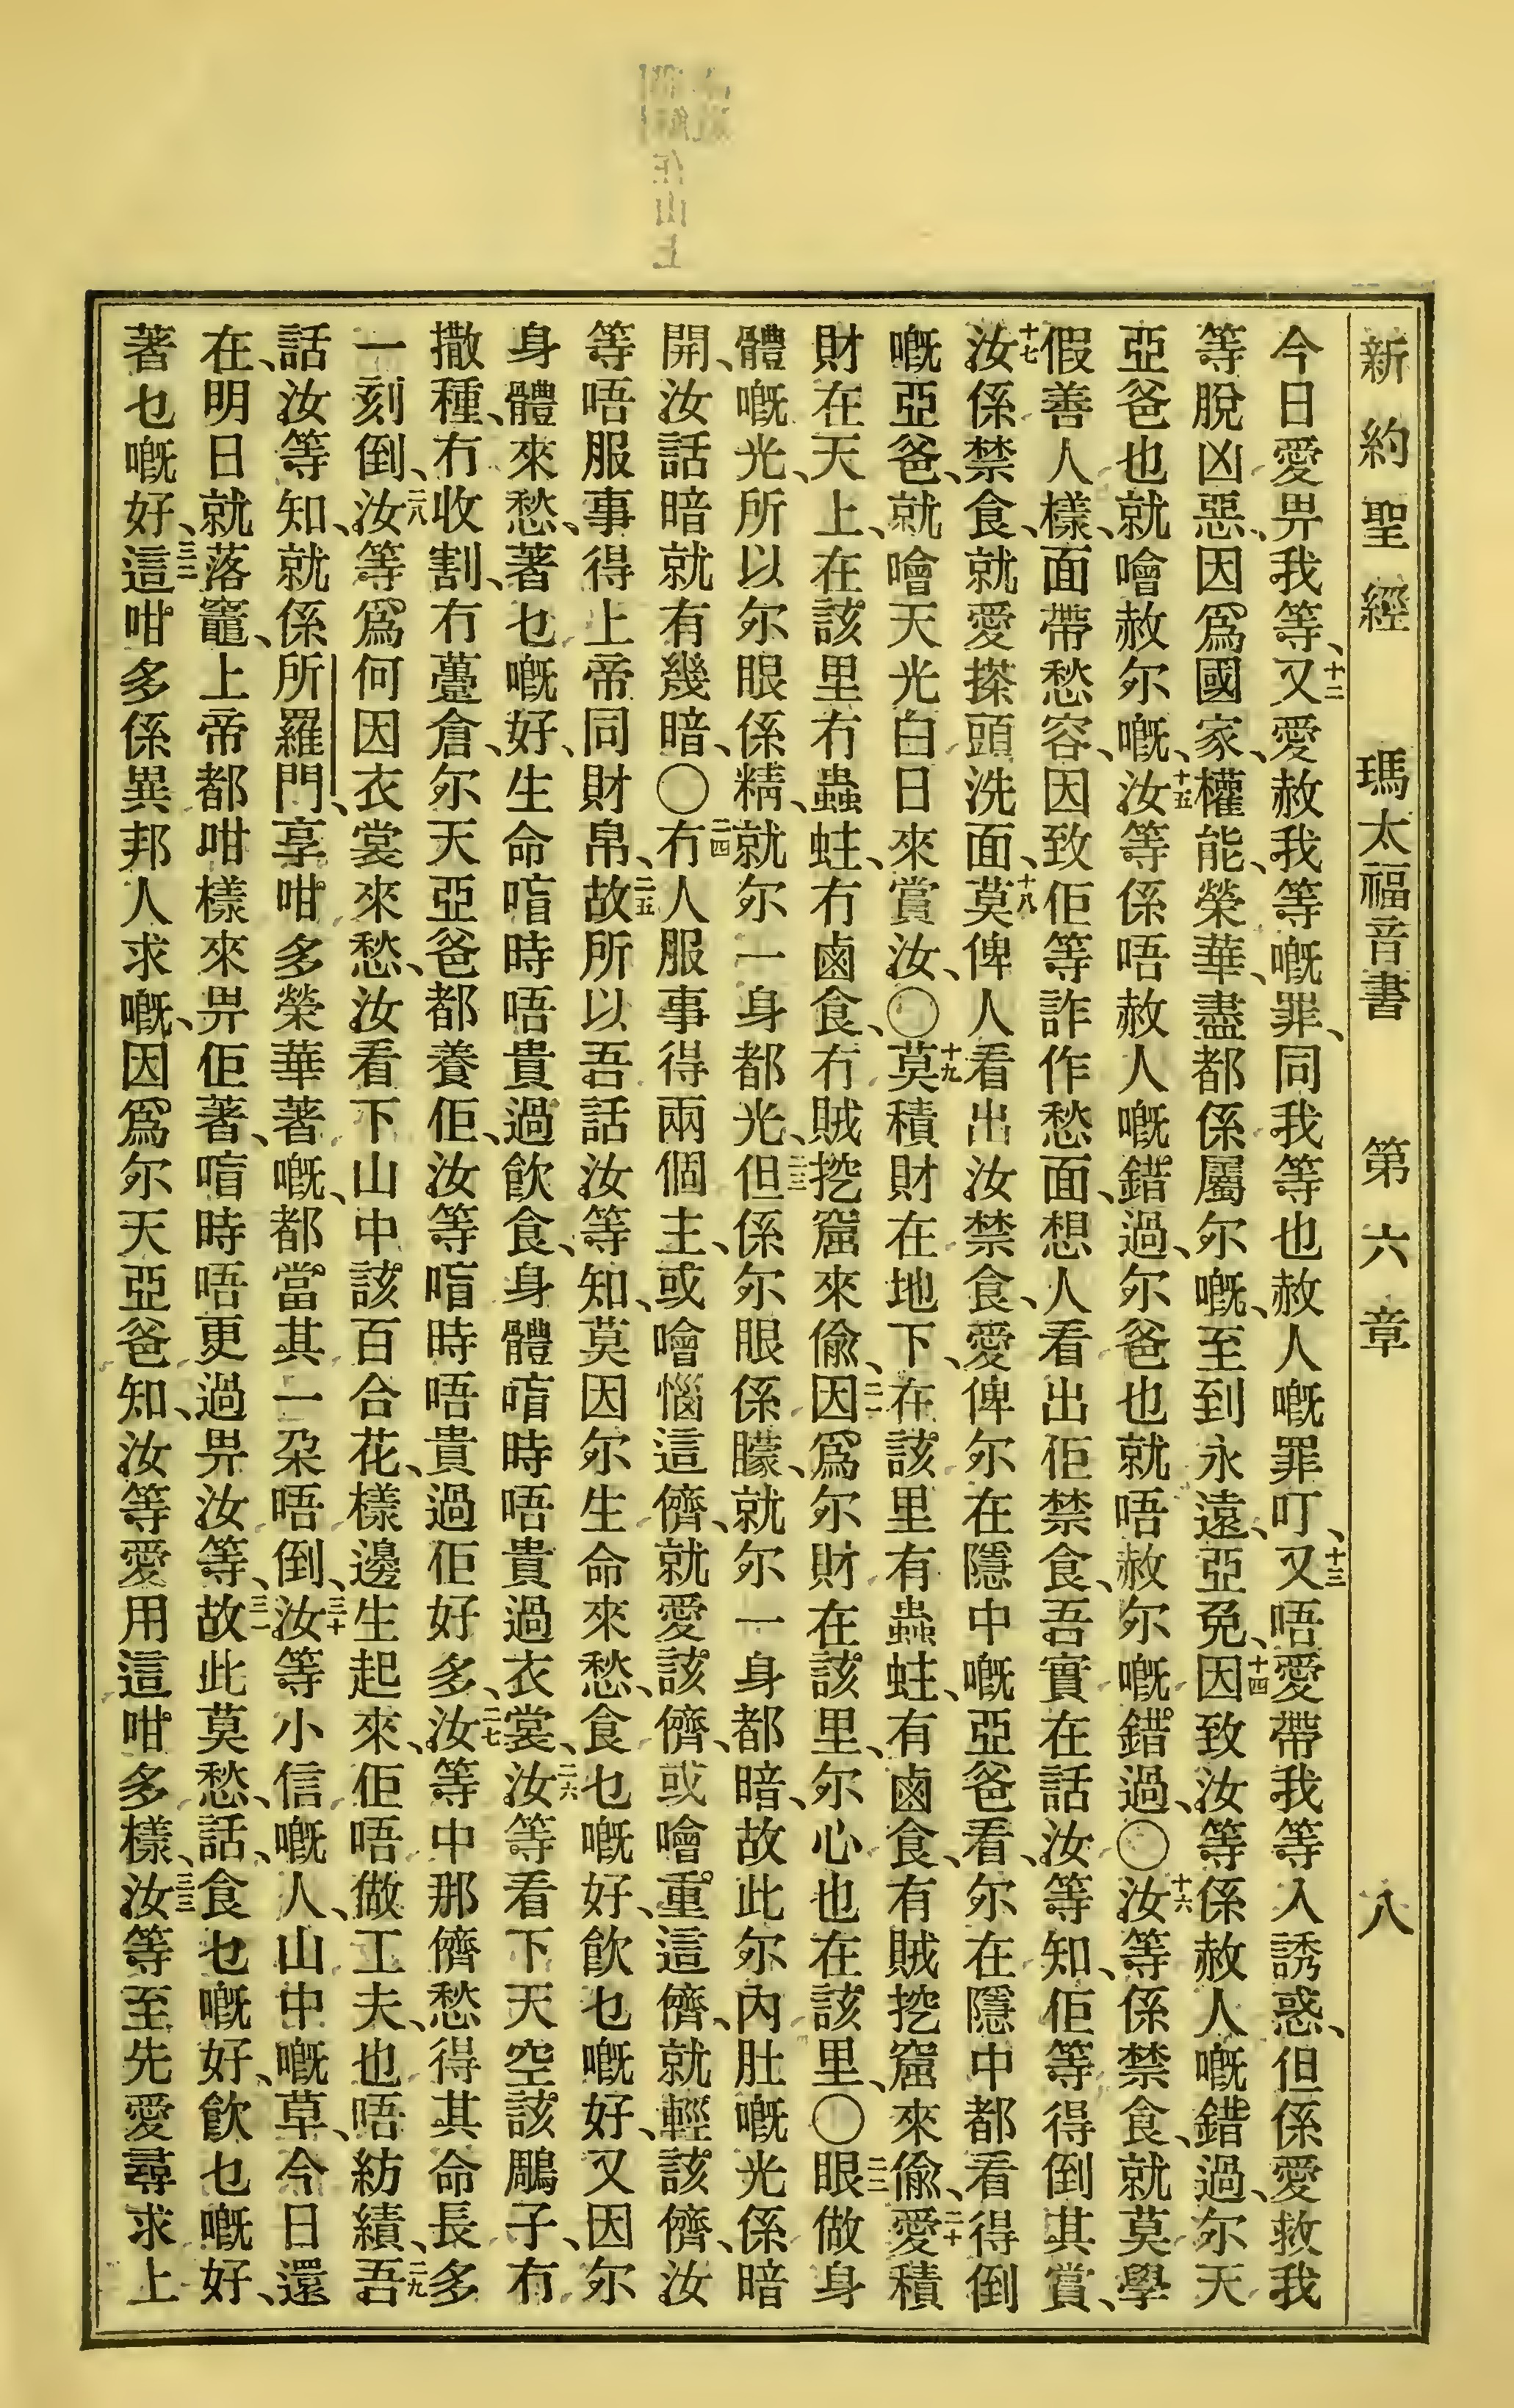 新約聖經 瑪太福音書 第六章 八
今日愛畀我等、十二又愛赦我等嘅罪、同我等也赦人嘅罪叮、十三又唔愛帶我等入誘惑、但係愛救我
等脫凶惡、因爲國家、權能、榮華、盡都係屬尔嘅、至到永遠、亞免、十四因致汝等係赦人嘅錯過、尔天
亞爸也就噲赦尔嘅、十五汝等係唔赦人嘅錯過、尔爸也就唔赦尔嘅錯過、〇十六汝等係禁食、就莫學
假善人樣、面帶愁容、因致佢等詐作愁面、想人看出佢禁食、吾實在話汝等知、佢等得倒其賞、
十七汝係禁食、就愛搽頭洗面、十八莫俾人看出汝禁食、愛俾尔在隱中嘅亞爸看、尔在隱中都看得倒
嘅亞爸、就噲天光白日來賞汝、〇十九莫積財在地下、在該里有蟲蛀、有鹵食、有賊挖窟來偷、二十愛積
財在天上、在該里冇蟲蛀、冇鹵食、冇賊挖窟來偷、二一因爲尔財在該里、尔心也在該里、〇二二眼做身
體嘅光、所以尔眼係精、就尔一身都光、二三但係尔眼係矇、就尔一身都暗、故此尔內肚嘅光係暗
開、汝話暗就有幾暗、〇二四冇人服事得兩個主、或噲惱這儕、就愛該儕、或噲重這儕、就輕該儕、汝
等唔服事得上帝同財帛、二五故所以吾話汝等知、莫因尔生命來愁、食乜嘅好、飲乜嘅好、又因尔
身體來愁、著乜嘅好、生命唁時唔貴過飲食、身體唁時唔貴過衣裳、二六汝等看下天空該鵰子、冇
撒種、冇收割、冇薹倉、尔天亞爸都養佢、汝等唁時唔貴過佢好多、二七汝等中那儕愁得其命長多
一刻倒、二八汝等爲何因衣裳來愁、汝看下山中該百合花、樣邊生起來、佢唔做工夫、也唔紡績、二九吾
話汝等知、就係所羅門、享咁多榮華著嘅、都當其一朶唔倒、三十汝等小信嘅人、山中嘅草、今日還
在、明日就落竈、上帝都咁樣來畀佢著、唁時唔更過畀汝等、三一故此莫愁、話、食乜嘅好、飲乜嘅好、
著乜嘅好、三二這咁多係異邦人求嘅、因爲尔天亞爸知、汝等愛用這咁多樣、三三汝等至先愛尋求上